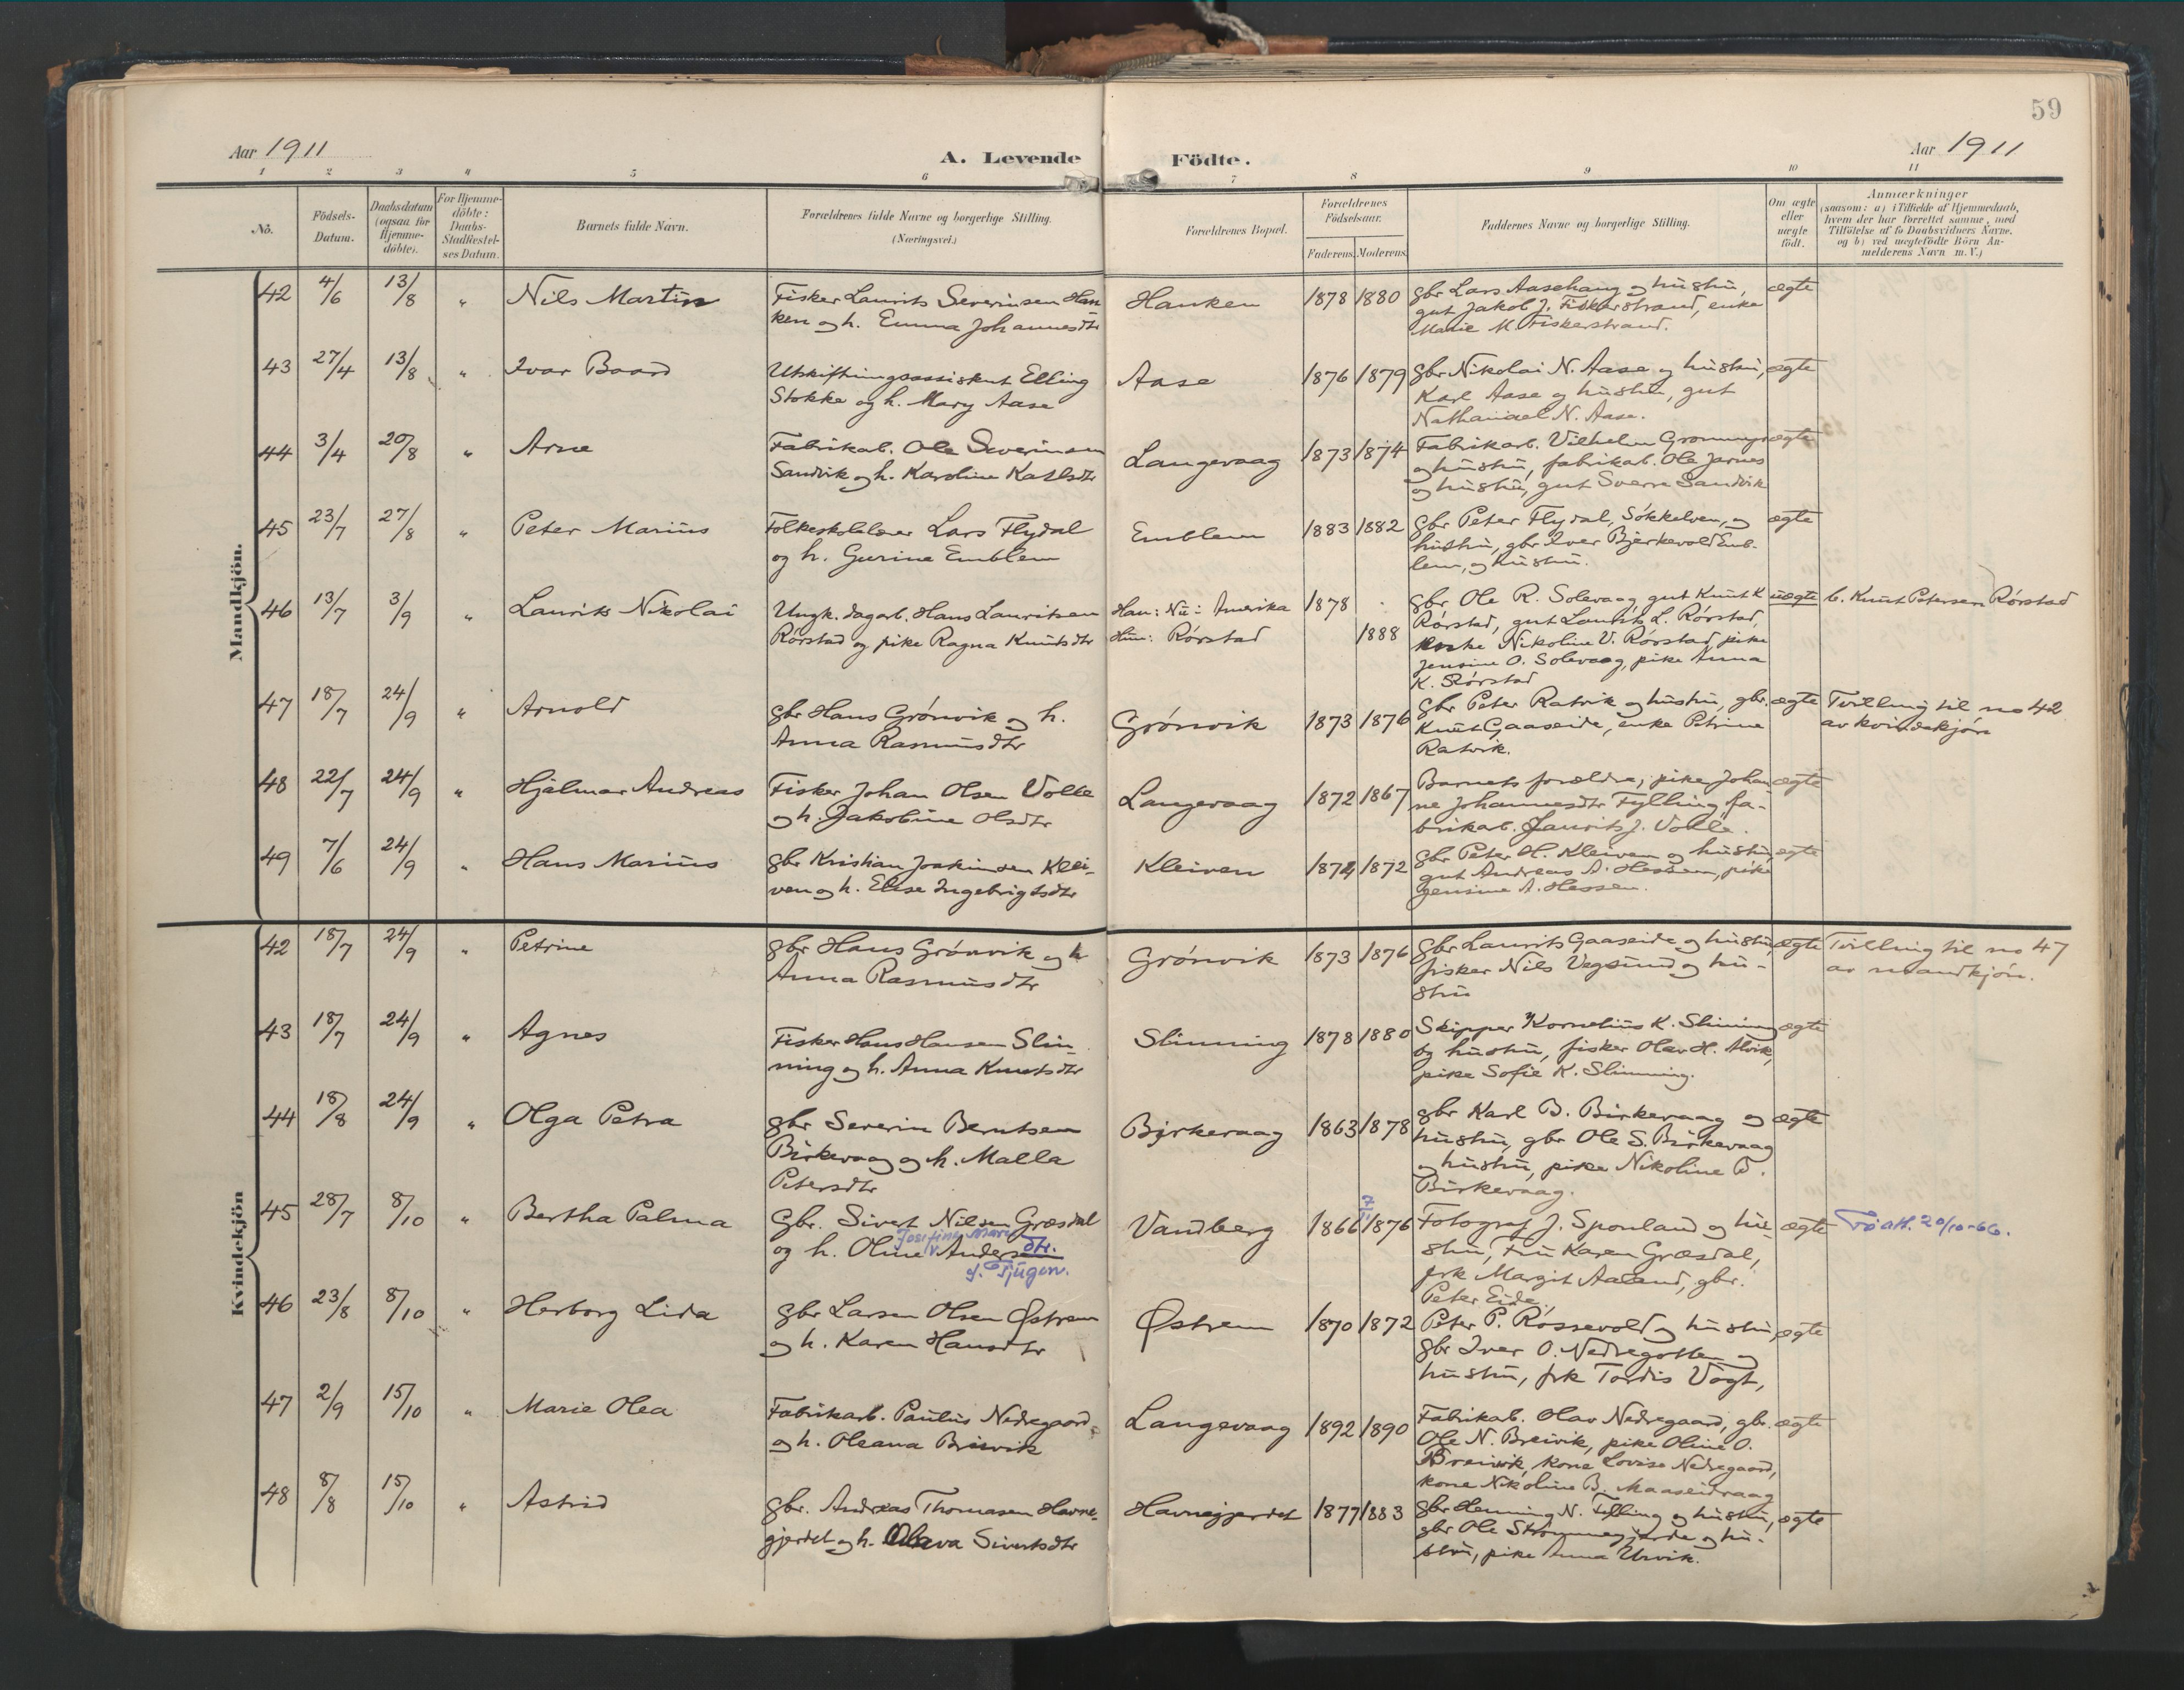 59
Aar 1911
A. Levende Födte.
Aar 1911
1 2 3 4 5 6 7 8 9 10 11
No.
Födsels-
Datum.
Daabsdatum
(ogsaa for
Hjemme-
döbte).
For Hjemme-
döbte:
Daabs-
Stadfæstel-
ses Datum.
Barnets fulde Navn.
Forældrenes fulde Navne og borgerlige Stilling.
(Næringsvei.)
Forældrenes Bopæl.
Forældrenes
Födselsaar.
Faderens. Moderens.
Faddernes Navne og borgerlige Stilling.
Om ægte
eller
uægte
födt.
Anmærkninger
(saasom: a) i Tilfælde af Hjemmedaab,
hvem der har forrettet samme, med
Tilföielse af to Daabsvidners Navne,
og b) ved uægtefödte Börn An-
melderens Navn m. V.)
Mandkjön.
42 4/6 13/8 " Nils Martin
Fisker Laurits Severinsen Han
ken og h. Emma Johannesdtr
Hanken 1878 1880
gbr Lars Aasehaug og hustru,
gut Jakob J. Fiskerstrand, enke
Marie M. Fiskerstrand.
ægte
43 27/4 13/8 " Ivar Baard
Utskiftningsassistent Elling
Stokke og h. Mary Aase
Aase 1876 1879
gbr Nikolai N. Aase og hustru,
Karl Aase og hustru, gut
Nathanael N. Aase.
ægte
44 3/4 20/8 " Arne
Fabrikarb. Ole Severinsen
Sandvik og h. Karoline Karlsdtr
Langevaag 1873 1874
Fabrikarb. Vilhelm
og hustru, fabrikarb. Ole
og hustru, gut Sverre Sandvik
ægte
45 23/7 27/8 " Peter Marius
Folkeskolelærer Lars Flydal
og h. Gurine Emblem
Emblem 1883 1882
gbr Peter Flydal, Søkkelven, og
hustru, gbr Iver Bjørkevold Emb-
lem, og hustru.
ægte
46 13/7 3/9 " Laurits Nikolai
Ungk. dagarb. Hans Lauritsen
Rørstad og pike Ragna Knutsdtr
Han: Nu: Amerika
Hun: Rørstad
1878
1888
gbr Ole R. Solevaag gut Knut K
Rørstad, gut Laurits L. Rørstad,
Nikoline V. Rørstad, pike
Jensine O. Solevaag, pike Anna
K. Rørstad
uægte
b. Knut Petersen Rørstad
47 18/7 24/9 " Arnold
gbr Hans Grønvik og h.
Anna Rasmusdtr
Grønvik 1873 1876
gbr Peter Ratvik og hustru, gbr.
Knut Gaaseide, enke Petrine
Ratvik.
ægte
Tvilling til no 42
av kvindekjøn
48 22/7 24/9 " Hjalmar Andreas
Fisker Johan Olsen Volle
og h. Jakobine Olsdtr
Langevaag 1872 1867
Barnets forældre, pike Johan
ne Johannesdtr Fylling fa-
brikarb. Laurits J. Volle.
ægte
49 7/6 24/9 " Hans Marius
gbr Kristian Joakimsen Klei-
ven og h. Elise Ingebrigtsdtr
Kleiven 1874 1872
gbr Peter H. Kleiven og hustru,
gut Andreas A. Hessen, pike
Jensine A. Hessen.
ægte
Kvindekjön
42 18/7 24/9 " Petrine
gbr Hans Grønvik og h
Anna Rasmusdtr
Grønvik 1873 1876
gbr Laurits Gaaseide og hustru,
fisker Nils Vegsund og hu-
stru
ægte
Tvilling til no 47
av mandkjøn.
43 18/7 24/9 " Agnes
Fisker Hans Hansen Slin-
ning og h. Anna Knutsdtr
Slinning 1878 1880
Skipper Kornelius K. Slinning
og hustru, fisker Olav H. Alvik,
pike Sofie K. Slinning.
ægte
44 18/8 24/9 " Olga Petra
gbr Severin Berntsen
Birkevaag og h. Malla
Petersdtr
Birkevaag 1863 1878
gbr Karl B. Birkevaag og
hustru, gbr Ole S. Birkevaag
og hustru, pike Nikoline B.
Birkevaag.
ægte
45 28/7 8/10 " Bertha Palma
Gbr. Sivert Nilsen Græsdal
og h. Oline Anders dtr.
f. Tjugen.
Vandberg 1866 1876
Fotograf J. Sponland og hu-
stru, Fru Karen Græsdal,
frk Margit Aaland, gbr.
Peter Eide.
ægte
Fø att. 20/10-66.
46 23/8 8/10 " Herborg Lida
gbr Larsen Olsen Østrem
og h. Karen Hansdtr
Østrem 1870 1872
Peter P. Røssevold og hustru,
gbr Iver O. Nedregotten og
hustru, frk Tordis Vogt,
ægte
47 2/9 15/10 " Marie Olea
Fabrikarb. Paulus Nedregaard
og h. Oleana Brievik
Langevaag 1892 1890
Fabrikarb. Olav Nedregaard, gbr.
Ole N. Breivik, pike Oline O.
Breivik, kone Lovise Nedregaard,
kone Nikoline B. Maaseidvaag
ægte
48 8/8 15/10 " Astrid
gbr. Andreas Thomasen Havne-
gjerdet og h. Olava Sivertsdtr
Havnegjerdet 1877 1883
gbr Henning N. Fylling og hustru,
gbr Ole Strømmegjerde og hu-
stru, pike Anna Urvik.
ægte